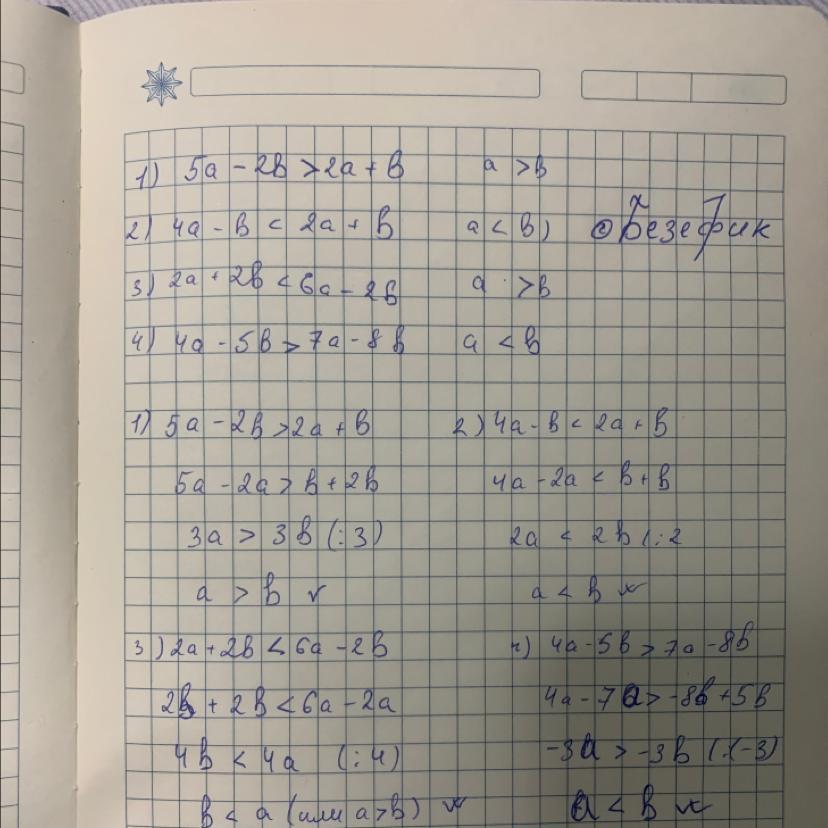 1) 5a - 2b > 2a + b a > b
2) 4a - b < 2a + b a < b) @безефик
3) 2a + 2b < 6a - 2b a > b
4) 4a - 5b > 7a - 8b a < b
1) 5a - 2b > 2a + b
5a - 2a > b + 2b
3a > 3b (:3)
a > b ✓
2) 4a - b < 2a + b
4a - 2a < b + b
2a < 2b (:2
a < b ✓
3) 2a + 2b < 6a - 2b
2b + 2b < 6a - 2a
4b < 4a (:4)
b < a (или a > b) ✓
4) 4a - 5b > 7a - 8b
4a - 7a > -8b + 5b
-3a > -3b (:(-3)
a < b ✓